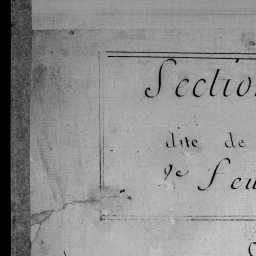 Section
dite de
2e Feu